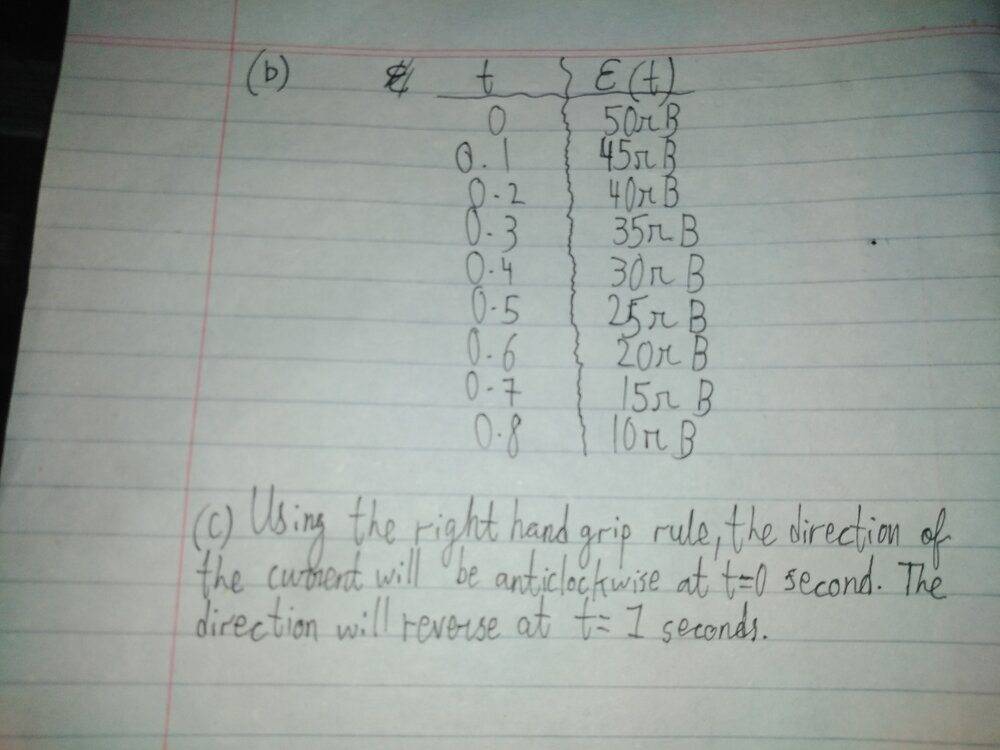 (b) t ε(t)
0 50πB
0.1 45πB
0.2 40πB
0.3 35πB
0.4 30πB
0.5 25πB
0.6 20πB
0.7 15πB
0.8 10πB
(c) Using the right hand grip rule, the direction of
the current will be anticlockwise at t=0 second. The
direction will reverse at t= 1 seconds.